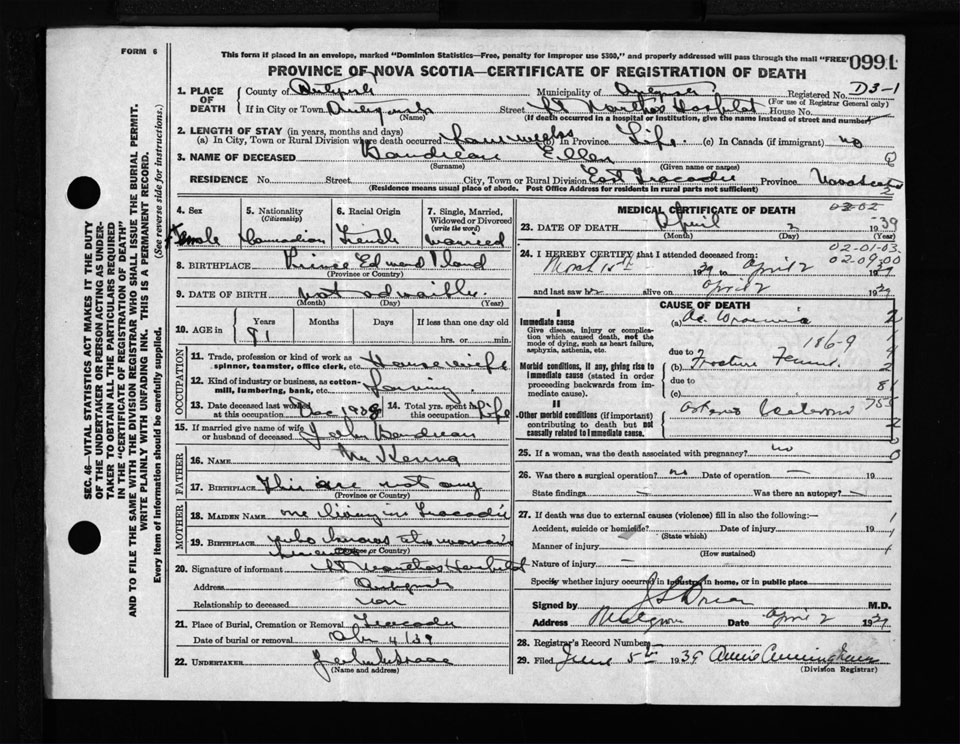 FORM 6
This form if placed in an envelope, marked "Dominion Statistics—Free, penalty for improper use $300," and properly addressed will pass through the mail "FREE"
099
PROVINCE OF NOVA SCOTIA—CERTIFICATE OF REGISTRATION OF DEATH
1. PLACE OF DEATH
County of Municipality of Registered No. D3-1
(For use of Registrar General only)
If in City or Town Street St Marthas Hospital House No.
(Name) (If death occurred in a hospital or institution, give the name instead of street and number)
2. LENGTH OF STAY (in years, months and days)
(a) In City, Town or Rural Division where death occurred four weeks (b) In Province Life (c) In Canada (if immigrant) no
3. NAME OF DECEASED Boudreau Ellen
(Surname) (Given name or names)
RESIDENCE No. Street City, Town or Rural Division East Tracadie Province Nova Scotia
(Residence means usual place of abode. Post Office Address for residents in rural parts not sufficient)
4. Sex
5. Nationality (Citizenship)
6. Racial Origin
7. Single, Married, Widowed or Divorced (write the word)
Female Canadian French married
8. BIRTHPLACE Prince Edward Island
(Province or Country)
9. DATE OF BIRTH not
(Month) (Day) (Year)
10. AGE in
Years Months Days If less than one day old
hrs. or min.
OCCUPATION
11. Trade, profession or kind of work as spinner, teamster, office clerk, etc. Housewife
12. Kind of industry or business, as cotton-mill, lumbering, bank, etc. farming
13. Date deceased last worked at this occupation Dec 1938
14. Total yrs. spent in this occupation Life
15. If married give name of wife or husband of deceased John Boudreau
FATHER
16. NAME Mc Kenna
17. BIRTHPLACE There are not any
(Province or Country)
MOTHER
18. MAIDEN NAME one living in Tracadie
19. BIRTHPLACE who knows the woman's
(Province or Country)
20. Signature of informant St Marthas Hospital
Address
Relationship to deceased non
21. Place of Burial, Cremation or Removal Tracadie
Date of burial or removal 4/39
22. UNDERTAKER
(Name and address)
MEDICAL CERTIFICATE OF DEATH
23. DATE OF DEATH April 2 1939
(Month) (Day) (Year)
02-01-03
02-09-00
24. I HEREBY CERTIFY that I attended deceased from:
March 1939 to April 2 1939
and last saw h alive on April 2 1939
CAUSE OF DEATH
I
Immediate cause
Give disease, injury or complication which caused death, not the mode of dying, such as heart failure, asphyxia, asthenia, etc.
(a) Ac. Uraemia
186-9
due to
Morbid conditions, if any, giving rise to immediate cause (stated in order proceeding backwards from immediate cause).
(b) Fracture Femur
due to
(c)
II
Other morbid conditions (if important) contributing to death but not causally related to immediate cause.
25. If a woman, was the death associated with pregnancy? no
26. Was there a surgical operation? no Date of operation — 19
State findings — Was there an autopsy? —
27. If death was due to external causes (violence) fill in also the following:—
Accident, suicide or homicide? Date of injury 19
(State which)
Manner of injury
(How sustained)
Nature of injury —
Specify whether injury occurred in industry, in home, or in public place
Signed by M.D.
Address Date April 2 1939
28. Registrar's Record Number
29. Filed June 5th 1939 Annie Cunningham
(Division Registrar)
SEC. 46—VITAL STATISTICS ACT MAKES IT THE DUTY
OF THE UNDERTAKER OR PERSON ACTING AS UNDER-
TAKER TO OBTAIN ALL THE PARTICULARS REQUIRED
IN THE "CERTIFICATE OF REGISTRATION OF DEATH"
AND TO FILE THE SAME WITH THE DIVISION REGISTRAR WHO SHALL ISSUE THE BURIAL PERMIT.
WRITE PLAINLY WITH UNFADING INK. THIS IS A PERMANENT RECORD.
Every item of information should be carefully supplied. (See reverse side for instructions.)